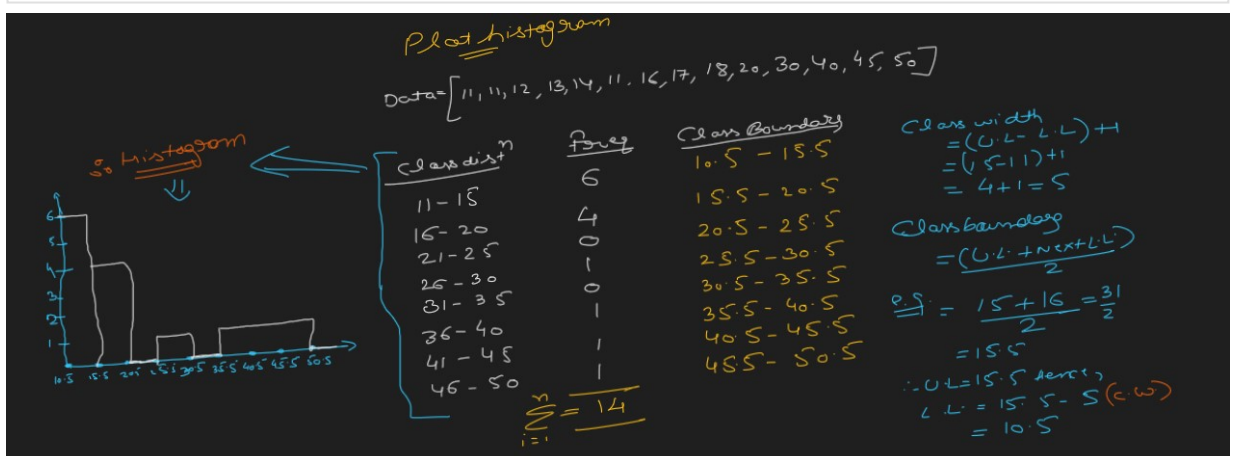 Plot histogram
Data=[11, 11, 12, 13, 14, 11, 16, 17, 18, 20, 30, 40, 45, 50]
∴ Histogram
⇓
6
5
4
3
2
1
10.5 15.5 20.5 25.5 30.5 35.5 40.5 45.5 50.5
Class distⁿ Freq Class Boundary
11-15 6 10.5 - 15.5
16-20 4 15.5 - 20.5
21-25 0 20.5 - 25.5
26-30 1 25.5 - 30.5
31-35 0 30.5 - 35.5
36-40 1 35.5 - 40.5
41-45 1 40.5 - 45.5
46-50 1 45.5 - 50.5
n
Σ = 14
i=1
Class width
= (U.L - L.L) +1
= (15-11) +1
= 4+1 = 5
Class boundary
= (U.L + Next L.L)
2
e.g. = 15+16 = 31
2 2
= 15.5
∴ U.L = 15.5 Hence,
L.L. = 15.5 - 5 (C.W)
= 10.5